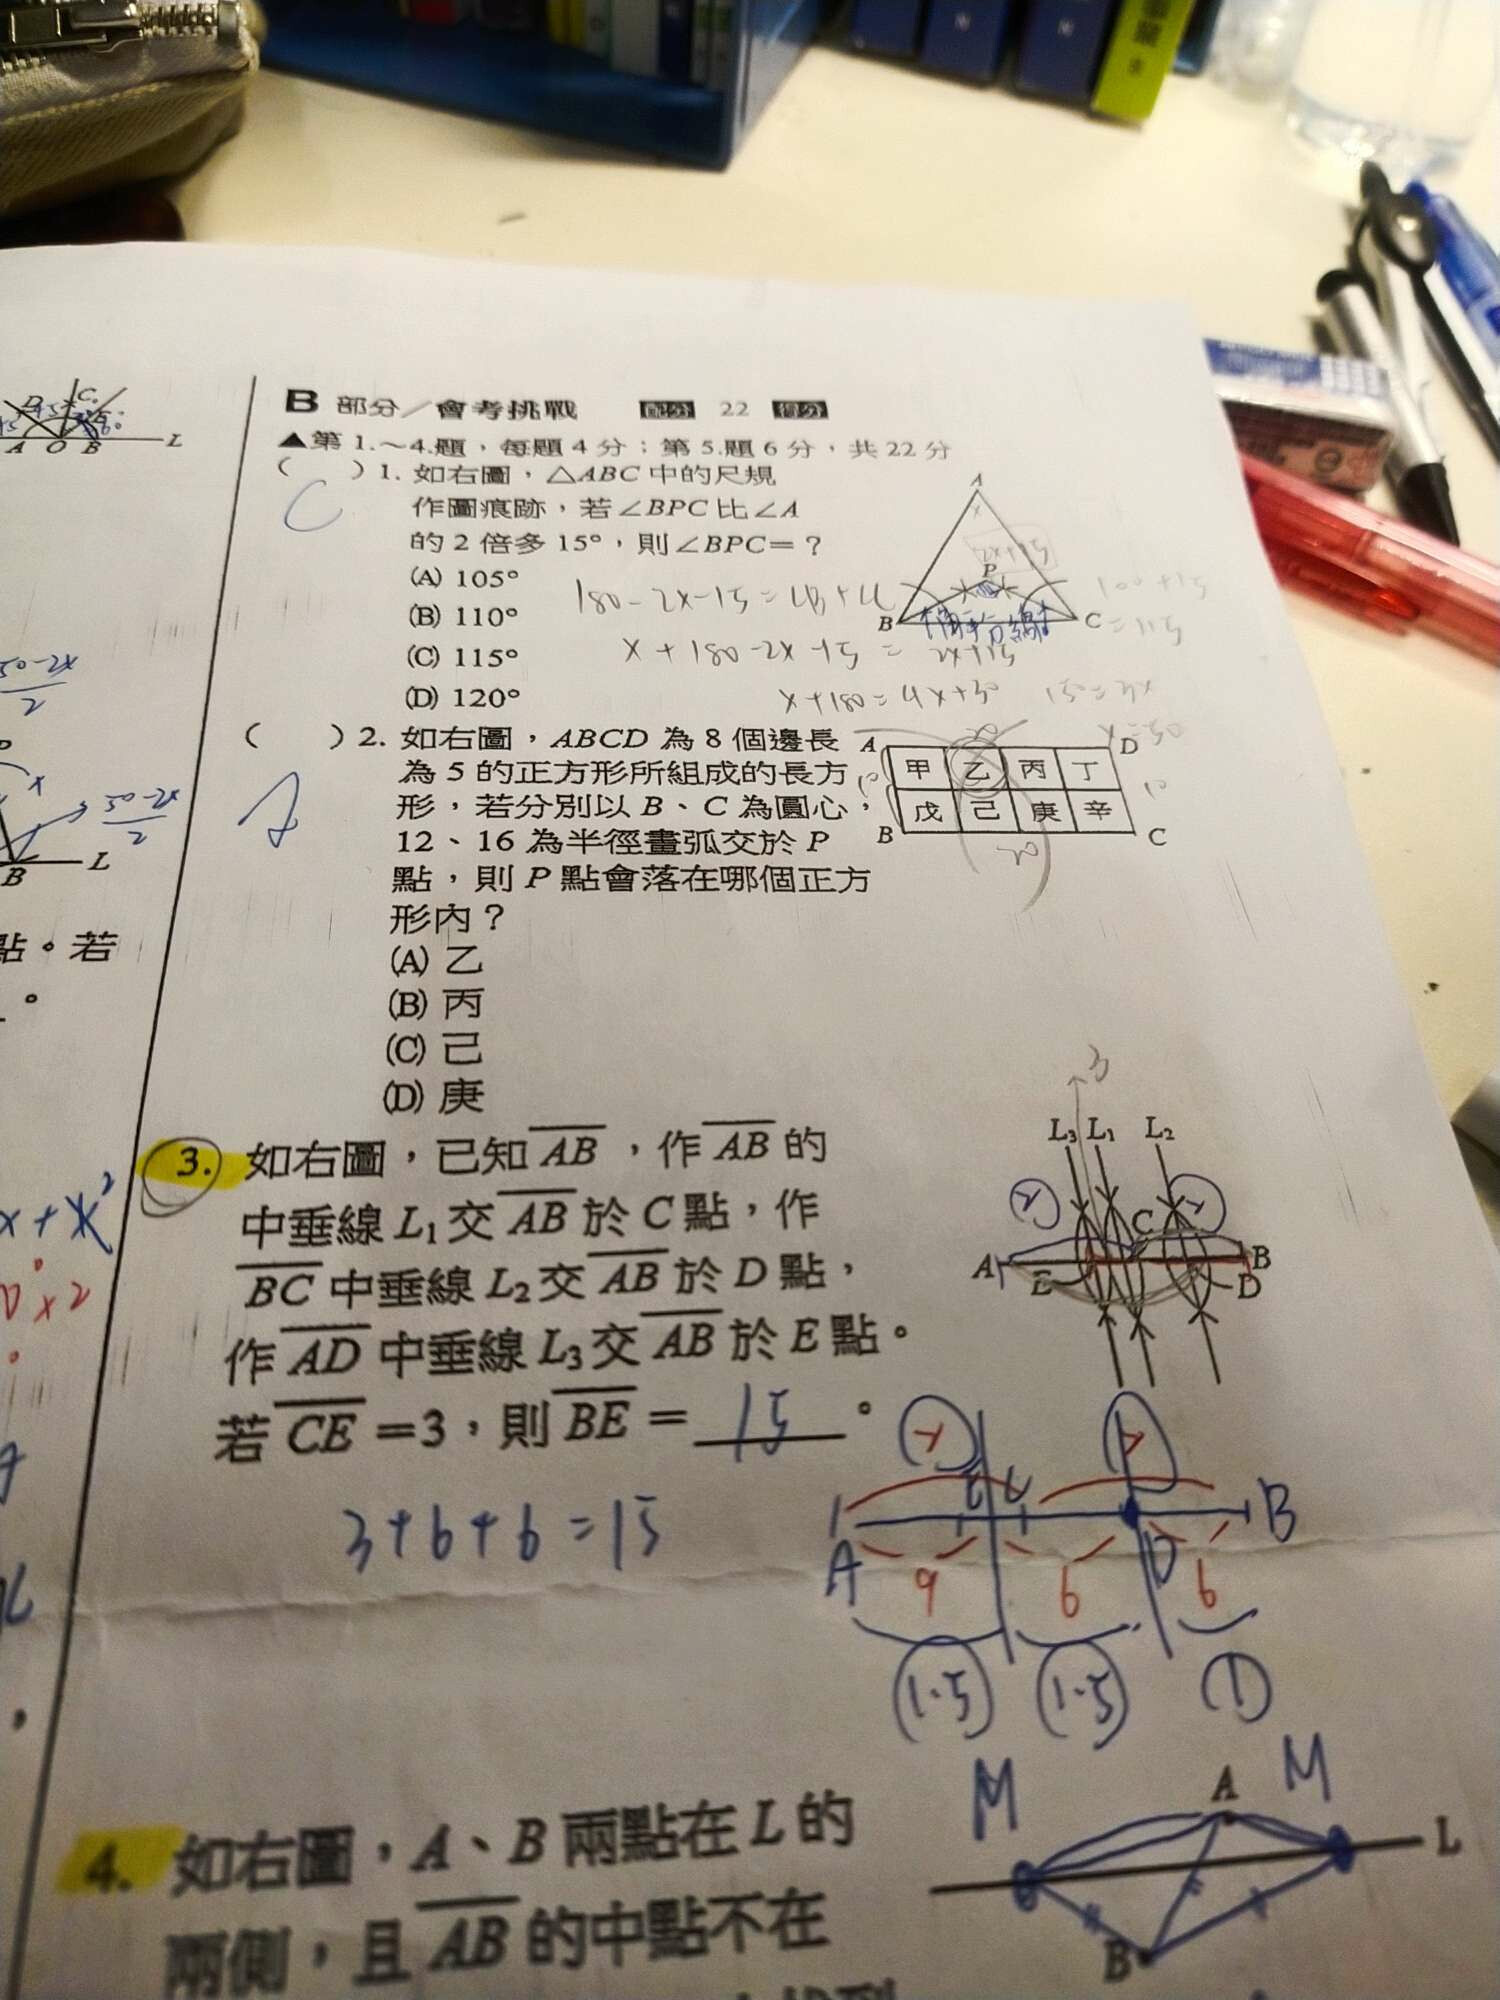 B 部分／會考挑戰 配分 22 得分
▲第 1.～4.題，每題 4 分；第 5.題 6 分，共 22 分
( C )1. 如右圖，△ABC 中的尺規
作圖痕跡，若∠BPC 比∠A
的 2 倍多 15°，則∠BPC=？
(A) 105°
(B) 110°
(C) 115°
(D) 120°
A
2x+15
P
B
角平分線
C
100+15
=115
x+180-2x-15=2x+15
x+180=4x+30
150=3x
x=50
( A )2. 如右圖，ABCD 為 8 個邊長
為 5 的正方形所組成的長方
形，若分別以 B、C 為圓心，
12、16 為半徑畫弧交於 P
點，則 P 點會落在哪個正方
形內？
(A) 乙
(B) 丙
(C) 己
(D) 庚
A
D
甲 乙 丙 丁
戊 己 庚 辛
B
C
10
10
20
20
3. 如右圖，已知AB，作AB的
中垂線 L₁交AB於 C 點，作
BC中垂線 L₂交AB於 D 點，
作AD中垂線 L₃交AB於 E 點。
若CE=3，則BE= 15 。
3+6+6=15
3
L₃ L₁ L₂
C
A
B
E
D
E C
B
A
D
9 6 6
1.5 1.5 1
4. 如右圖，A、B 兩點在 L 的
兩側，且AB的中點不在
M
A
M
L
B
A O B L
D
C
B L
點。若
。
x